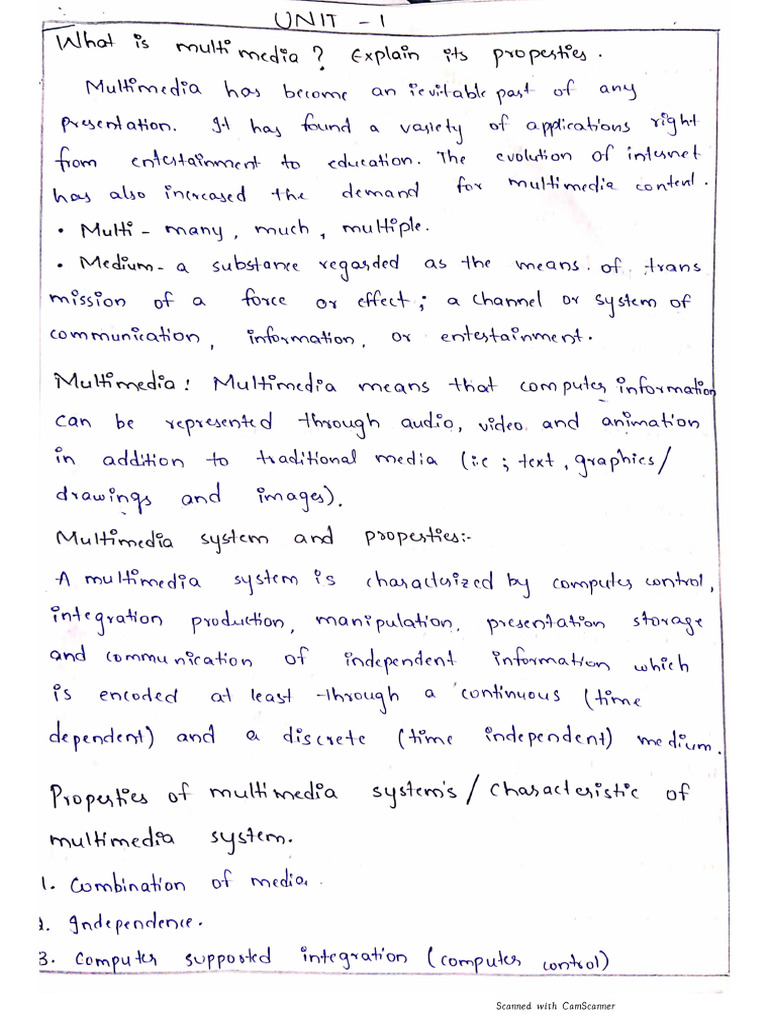 UNIT - 1
What is multimedia? Explain its properties.
Multimedia has become an ievitable past of any
presentation. It has found a variety of applications right
from entertainment to education. The evolution of internet
has also increased the demand for multimedia content.
• Multi - many, much, multiple.
• Medium - a substance regarded as the means of trans
mission of a force or effect; a channel or system of
communication, information, or entertainment.
Multimedia: Multimedia means that computer information
can be represented through audio, video and animation
in addition to traditional media (i.e; text, graphics/
drawings and images).
Multimedia system and properties:-
A multimedia system is characterized by computer control,
integration production, manipulation, presentation storage
and communication of independent information which
is encoded at least through a continuous (time
dependent) and a discrete (time independent) medium.
Properties of multimedia system's/characteristic of
multimedia system.
1. Combination of media.
2. Independence.
3. Computer supported integration (computer control)
Scanned with CamScanner